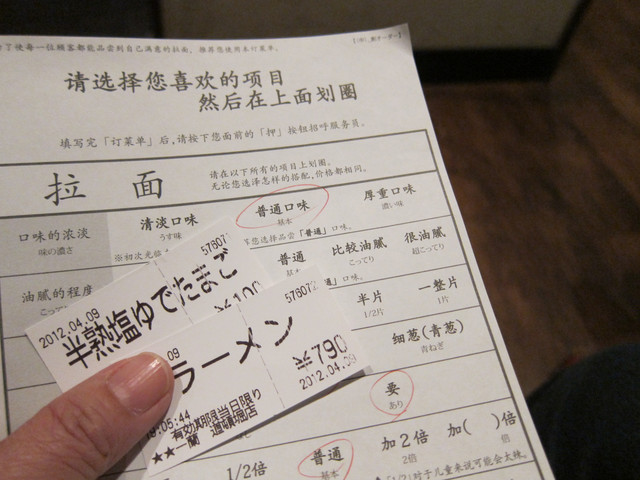 了使每一位顾客都能品尝到自己满意的拉面，推荐您使用本订菜单。
请选择您喜欢的项目
然后在上面划圈
填写完「订菜单」后,请按下您面前的「押」按钮招呼服务员。
拉 面
请在以下所有的项目上划圈。
无论您选泽怎样的搭配,价格都相同。
口味的浓淡
味の濃さ
清淡口味
うす味
普通口味
基本
厚重口味
濃い味
您选择品尝「普通」口味。
油腻的程度
普通
基本
比较油腻
こってり
很油腻
超こってり
口味。
半片
1/2片
一整片
1片
细葱(青葱)
青ねぎ
要
あり
1/2倍
普通
基本
加2倍
2倍
加( )倍
倍
对于儿童来说可能会太辣。
576072
半熟塩ゆでたまご
¥100
2012.04.09
576072
ラーメン
¥790
2012.04.09
09
19:05:44
有効期限当日限り
★★一蘭 道頓堀店